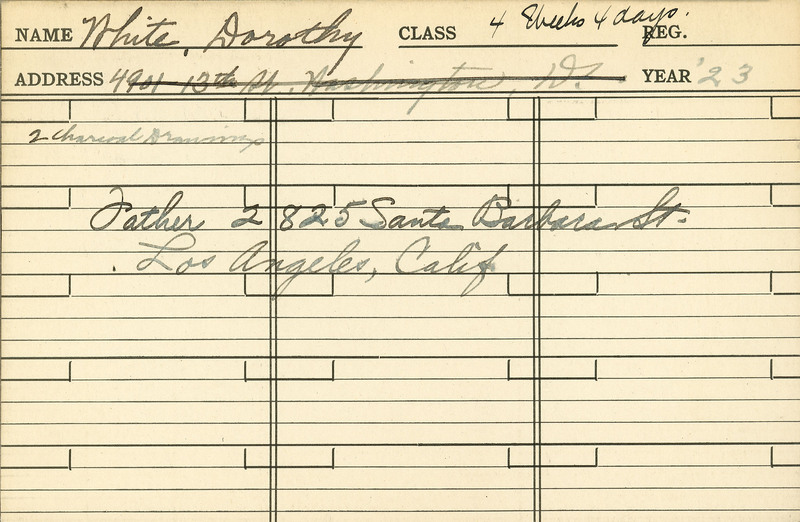 NAME White, Dorothy CLASS 4 Weeks 4 days. REG.
ADDRESS 4901 13th St. Washington, D. YEAR '23
2 Charcoal Drawings
Father 2825 Santa Barbara St.
Los Angeles, Calif